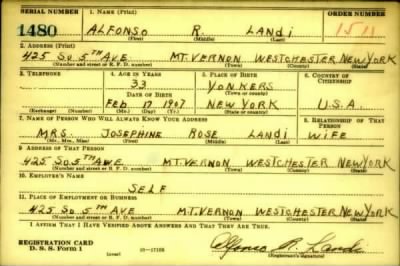 SERIAL NUMBER 1. NAME (Print) ORDER NUMBER
1480 ALFONSO R. LANDI 1511
(First) (Middle) (Last)
2. ADDRESS (Print)
425 SO. 5TH AVE MT. VERNON WESTCHESTER NEW YORK
(Number and street or R. F. D. number) (Town) (County) (State)
3. TELEPHONE 4. AGE IN YEARS 5. PLACE OF BIRTH 6. COUNTRY OF CITIZENSHIP
33 YONKERS
DATE OF BIRTH (Town or county)
FEB 17 1907 NEW YORK U.S.A.
(Exchange) (Number) (Mo.) (Day) (Yr.) (State or country)
7. NAME OF PERSON WHO WILL ALWAYS KNOW YOUR ADDRESS 8. RELATIONSHIP OF THAT PERSON
MRS. JOSEPHINE ROSE LANDI WIFE
(Mr., Mrs., Miss) (First) (Middle) (Last)
9. ADDRESS OF THAT PERSON
425 SO. 5TH AVE MT. VERNON WESTCHESTER NEW YORK
(Number and street or R. F. D. number) (Town) (County) (State)
10. EMPLOYER'S NAME
SELF
11. PLACE OF EMPLOYMENT OR BUSINESS
425 SO. 5TH AVE MT. VERNON WESTCHESTER NEW YORK
(Number and street or R. F. D. number) (Town) (County) (State)
I AFFIRM THAT I HAVE VERIFIED ABOVE ANSWERS AND THAT THEY ARE TRUE.
REGISTRATION CARD
D. S. S. Form 1 (over) 16-17105 Alfonso R. Landi
(Registrant's signature)